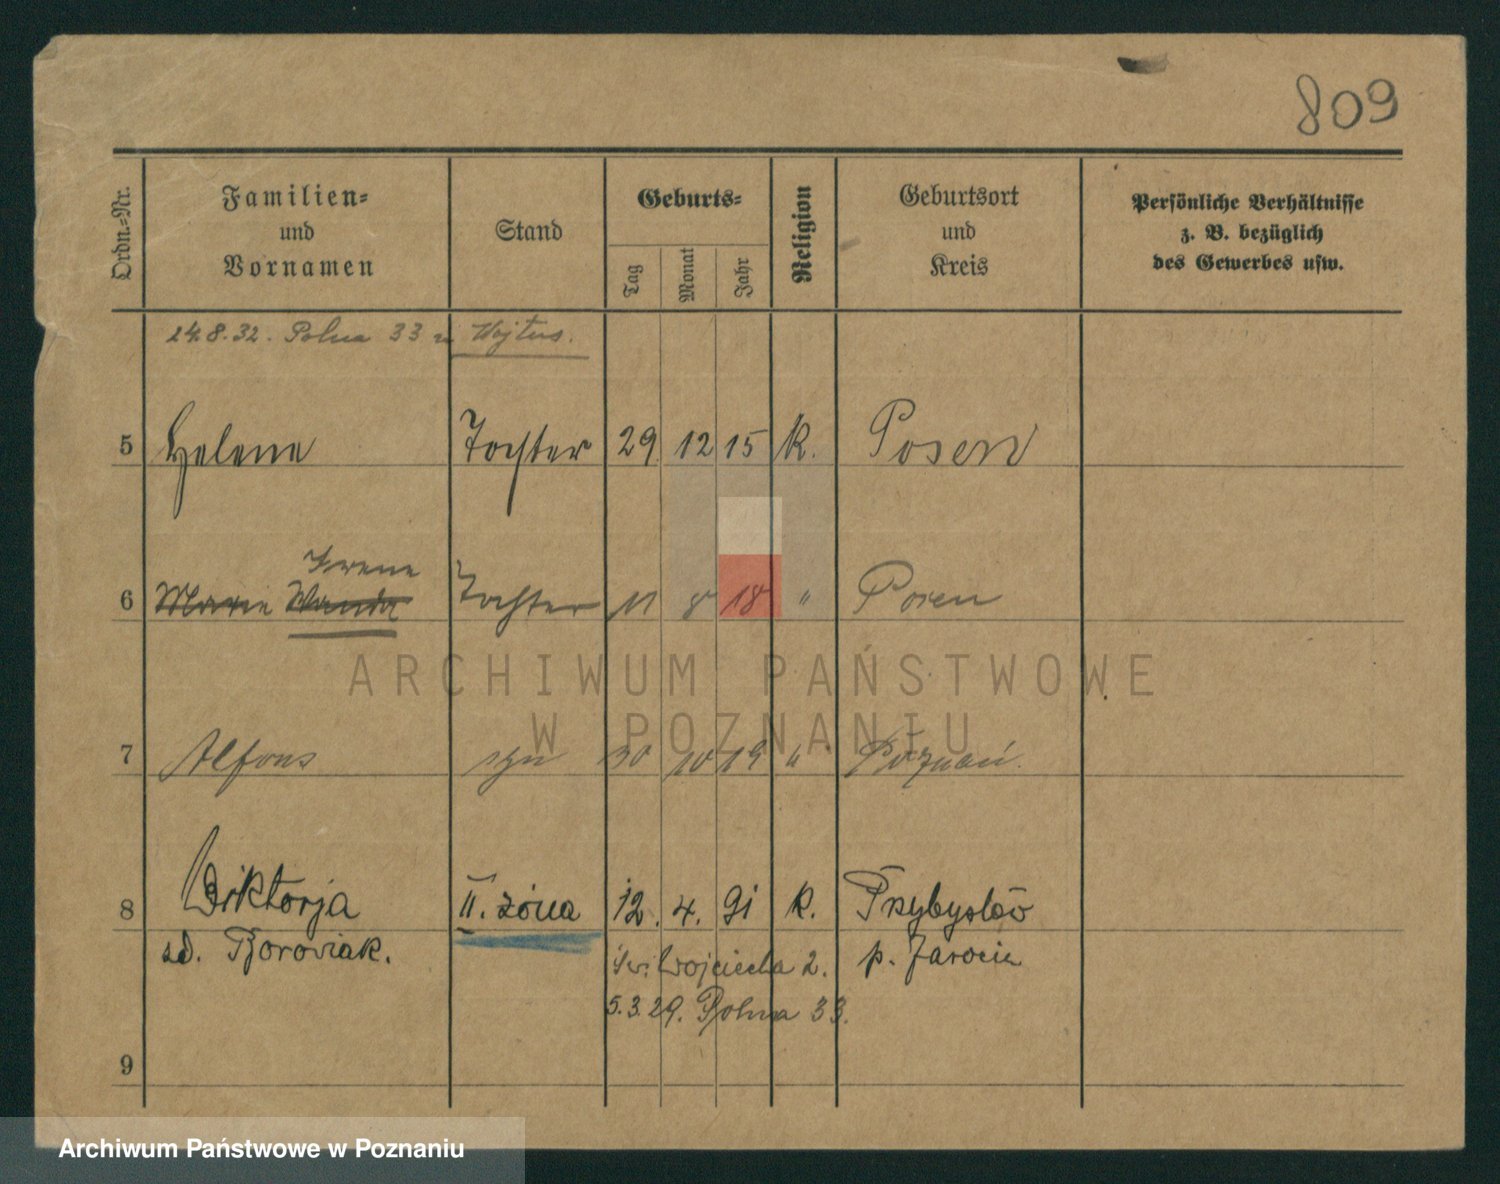 809
Ordn.-Nr.
Familien-
und
Vornamen
Stand
Geburts-
Tag
Monat
Jahr
Religion
Geburtsort
und
Kreis
Persönliche Verhältnisse
z. B. bezüglich
des Gewerbes usw.
24.8.32. Polna 33 u Wojtus.
5 Helene Tochter 29 12 15 k. Posen
Irene
6 Marie Wanda Tochter 11 8 18 " Posen
ARCHIWUM PAŃSTWOWE
W POZNANIU
7 Alfons syn 30 10 19 " Poznań.
8 Wiktorja II. żona 12. 4. 91 k. Przybysław
zd. Borowiak. p. Jarocin
Św. Wojciecha 2.
5.3.29. Polna 33.
9
Archiwum Państwowe w Poznaniu